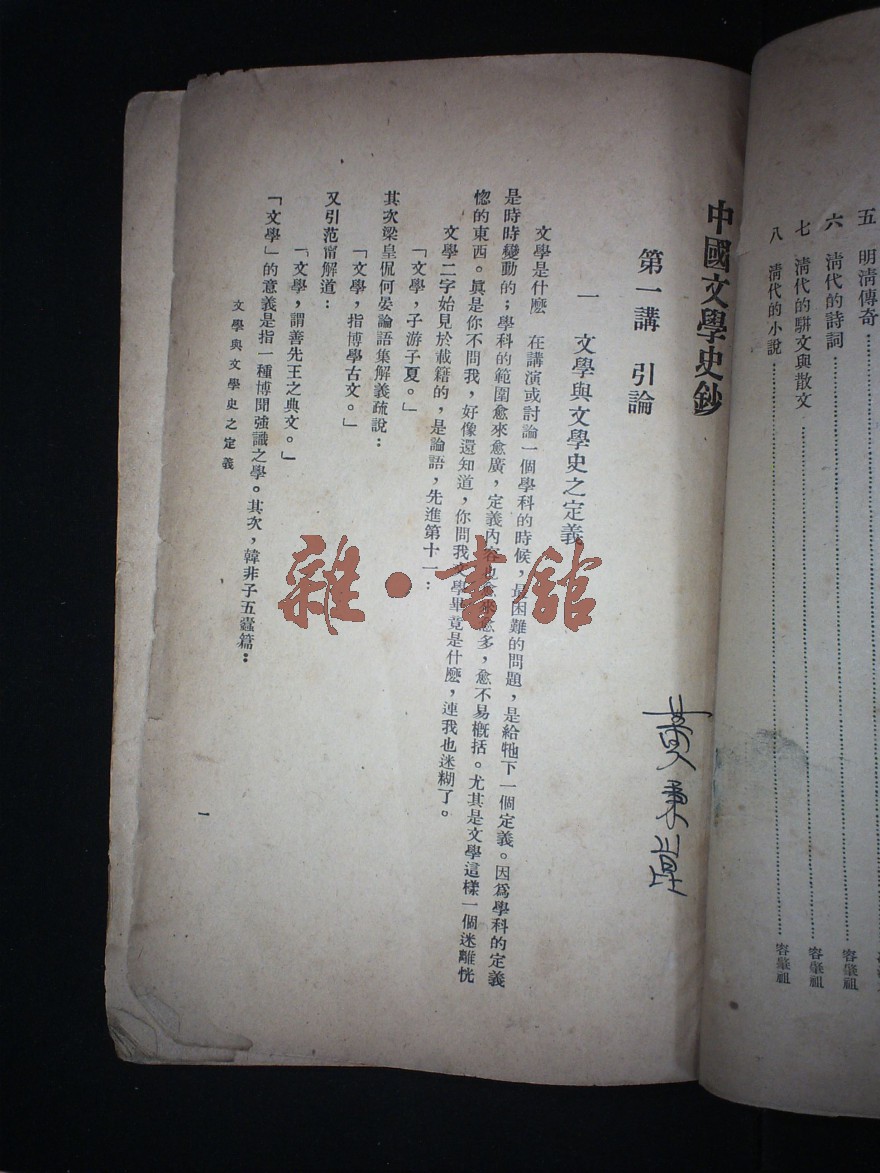 五　明清傳奇
六　淸代的詩詞　容肇祖
七　淸代的騈文與散文　容肇祖
八　淸代的小說　容肇祖
中國文學史鈔
第一講　引論
一　文學與文學史之定義
文學是什麽　在講演或討論一個學科的時候，最困難的問題，是給牠下一個定義。因爲學科的定義
是時時變動的；學科的範圍愈來愈廣，定義內容也愈來愈多，愈不易槪括。尤其是文學這樣一個迷離恍
惚的東西。眞是你不問我，好像還知道，你問我文學畢竟是什麽，連我也迷糊了。
文學二字始見於載籍的，是論語，先進第十一：
「文學，子游子夏。」
其次梁皇侃何晏論語集解義疏說：
「文學，指博學古文。」
又引范甯解道：
「文學，謂善先王之典文。」
「文學」的意義是指一種博聞強識之學。其次，韓非子五蠹篇：
文學與文學史之定義
一
雜·書館